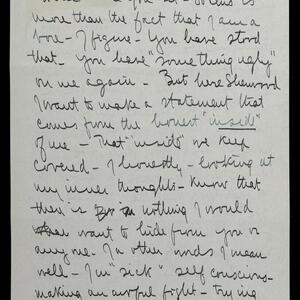 more than the fact that I am a
bore – I figure – you have stood
that – you have "something ugly"
on me again – But here Sherwood
I want to make a statement that
comes from the honest "inside"
of me – That "inside" we keep
covered – I honestly – looking at
my inner thoughts – know that
there is nothing I would
want to hide from you or
anyone – In other words I mean
well – I'm "sick" self conscious –
making an awful fight – trying